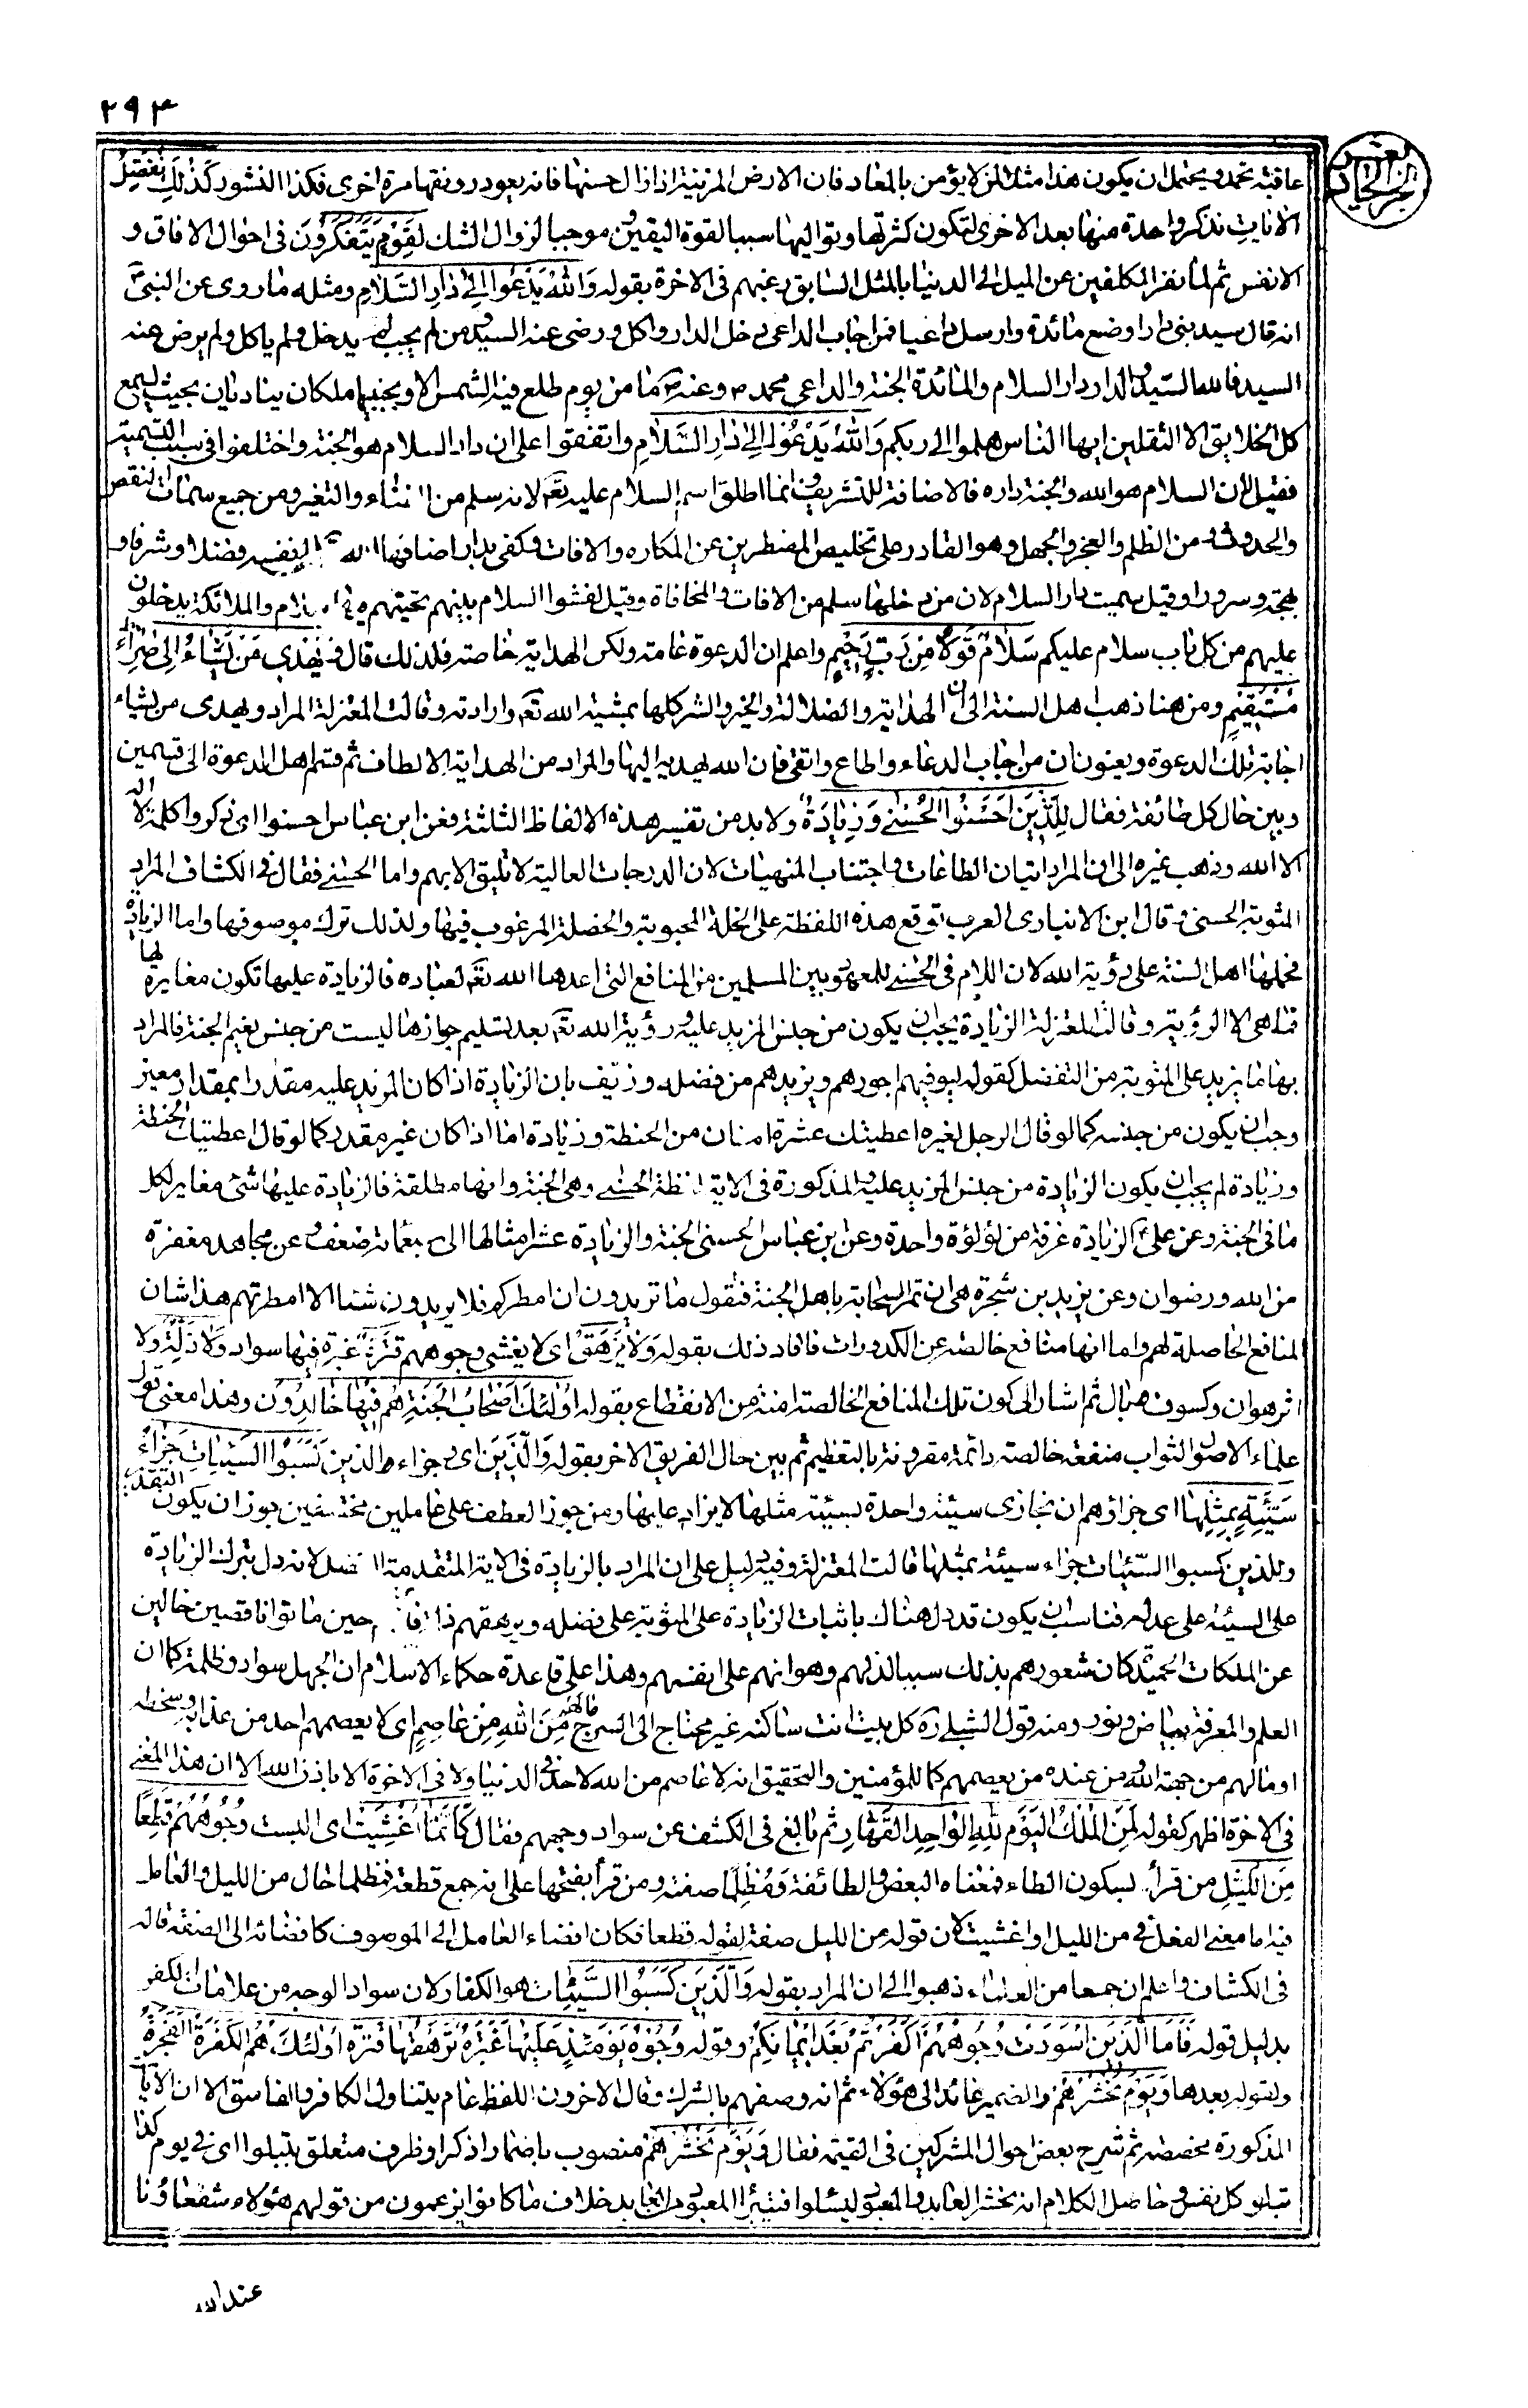 ٢٩٣
عاقبته تحمد ويحتمل ان يكون هذا مثلا لمن لا يؤمن بالمعاد فان الارض المزينة اذا زال حسنها فانه يعود رونقها مرة اخرى فكذا النشور كَذٰلِكَ نُفَصِّلُ
الْاٰيٰاتِ نذكر واحدة منها بعد الاخرى لتكون كثرتها وتواليها سببا لقوة اليقين وموجبا لزوال الشك لِقَوْمٍ يَتَفَكَّرُونَ فى احوال الافاق و
الانفس ثم لما نفر المكلفين عن الميل الى الدنيا بالمثل السابق رغبهم فى الاخرة بقوله وَاللّٰهُ يَدْعُوا اِلىٰ دٰارِ السَّلاٰمِ ومثله ما روى عن النبى ص
انه قال سيد بنى دارا وضع مائدة وارسل داعيا فمن اجاب الداعى دخل الدار واكل ورضى عنه السيد ومن لم يجب لم يدخل ولم ياكل ولم يرض عنه
السيد فالله السيد والدار دار السلام والمائدة الجنة والداعى محمد ص وعنه ص ما من يوم طلع فيه الشمس الا وبجنبيها ملكان يناديان بحيث يسمع
كل الخلايق الا الثقلين ايها الناس هلموا الى ربكم وَاللّٰهُ يَدْعُوا اِلىٰ دٰارِ السَّلاٰمِ واتفقوا على ان دار السلام هو الجنة واختلفوا فى سبب التسمية
فقيل لان السلام هو الله والجنة داره فالاضافة للتشريف وانما اطلق اسم السلام عليه تعه لانه سلم من الفناء والتغير ومن جميع سمات النقص
والحدوث ومن الظلم والعجز والجهل وهو القادر على تخليص المضطرين عن المكاره والافات وكفى بدار اضافها الله الى نفسه فضلا وشرفا و
بهجة وسرورا وقيل سميت دار السلام لان من دخلها سلم من الافات والمخافاة وقيل لفشوا السلام بينهم تحيتهم فيها سلام والملائكة يدخلون
عليهم من كل باب سلام عليكم سَلاٰمٌ قَوْلاً مِنْ رَبٍّ رَحِيمٍ واعلم ان الدعوة عامة ولكن الهداية خاصة فلذلك قال وَيَهْدِى مَنْ يَشٰاءُ اِلىٰ صِرٰاطٍ
مُسْتَقِيمٍ ومن هنا ذهب اهل السنة الى ان الهداية والضلالة والخير والشر كلها بمشية الله تعه وارادته وقالت المعتزلة المراد ويهدى من يشاء
اجابة تلك الدعوة ويعنون ان من اجاب الدعاء واطاع واتقى فان الله يهديه اليها والمراد من الهداية الالطاف ثم قسم اهل الدعوة الى قسمين
وبين حال كل طائفة فقال لِلَّذِينَ اَحْسَنُوا الْحُسْنىٰ وَزِيٰادَةٌ ولا بد من تفسير هذه الالفاظ الثلثة فعن ابن عباس احسنوا اى ذكروا كلمة لا اله
الا الله وذهب غيره الى ان المراد اتيان الطاعات واجتناب المنهيات لان الدرجات العالية لا تليق الا بهم واما الحسنى فقال فى الكشاف المراد
المثوبة الحسنى وقال ابن الانبارى العرب توقع هذه اللفظة على الخلة المحبوبة والخصلة المرغوب فيها ولذلك ترك موصوفها واما الزيادة
فحملها اهل السنة على رؤية الله لان اللام فى الحسنى للمعهود بين المسلمين من المنافع التى اعدها الله تعه لعباده فالزيادة عليها تكون مغايرة لها
فما هى الا الرؤية وقالت المعتزلة الزيادة يجب ان يكون من جنس المزيد عليه ورؤية الله تعه بعد تسليم جوازها ليست من جنس نعيم الجنة فالمراد
بها ما يزيد على المثوبة من التفضل كقوله ليوفيهم اجورهم ويزيدهم من فضله وزيف بان الزيادة اذا كان المزيد عليه مقدرا بمقدار معين
وجب ان يكون من جنسه كما لو قال الرجل لغيره اعطيتك عشرة امنان من الحنطة وزيادة اما اذا كان غير مقدر كما لو قال اعطيتك الحنطة
وزيادة لم يجب ان يكون الزيادة من جنس المزيد عليه والمذكورة فى الاية لفظة الحسنى وهى الجنة وانها مطلقة فالزيادة عليها شئ مغاير لكل
ما فى الجنة وعن على ع الزيادة غرفة من لؤلؤة واحدة وعن ابن عباس الحسنى الجنة والزيادة عشر امثالها الى سبعمائة ضعف وعن مجاهد مغفرة
من الله ورضوان وعن يزيد بن شجرة هى ان تمر السحابة باهل الجنة فتقول ما تريدون ان امطركم فلا يريدون شيئا الا امطرتهم هذا شان
المنافع الحاصلة لهم واما انها منافع خالصة عن الكدورات فافاد ذلك بقوله وَلاٰ يَرْهَقُ اى لا يغشى وجوههم قَتَرٌ غبرة فيها سواد وَلاٰ ذِلَّةٌ ولا
اثر هوان وكسوف بال ثم اشار الى كون تلك المنافع الخالصة امنة من الانقطاع بقوله اُولٰئِكَ اَصْحٰابُ الْجَنَّةِ هُمْ فِيهٰا خٰالِدُونَ وهذا معنى قول
علماء الاصول الثواب منفعة خالصة دائمة مقرونة بالتعظيم ثم بين حال الفريق الاخر بقوله وَالَّذِينَ اى وجزاء الذين كَسَبُوا السَّيِّئٰاتِ جَزٰاءُ
سَيِّئَةٍ بِمِثْلِهٰا اى جزاؤهم ان تجازى سيئة واحدة بسيئة مثلها لا يزاد عليها ومن جوز العطف على عاملين مختلفين جوز ان يكون التقدير
وللذين كسبوا السيئات جزاء سيئة بمثلها قالت المعتزلة وفيه دليل على ان المراد بالزيادة فى الاية المتقدمة الفضل لانه دل بترك الزيادة
على السيئة على عدله فناسب ان يكون قد دل هناك باثبات الزيادة على المثوبة على فضله ويرهقهم ذلة حين ماتوا ناقصين خالين
عن الملكات الحميدة كان شعورهم بذلك سببا لذلهم وهوانهم على انفسهم وهذا على قاعدة حكماء الاسلام ان الجهل سواد وظلمة كما ان
العلم والمعرفة بياض ونور ومنه قول الشبلى ره كل بيت انت ساكنه غير محتاج الى السرج مٰا لَهُمْ مِنَ اللّٰهِ مِنْ عٰاصِمٍ اى لا يعصمهم احد من عذابه وسخطه
او ما لهم من جهة الله ومن عنده من يعصمهم كما للمؤمنين والتحقيق انه لا عاصم من الله لاحد فى الدنيا ولا فى الاخرة الا باذن الله الا ان هذا المعنى
فى الاخرة اظهر كقوله لِمَنِ الْمُلْكُ الْيَوْمَ لِلّٰهِ الْوٰاحِدِ الْقَهّٰارِ ثم بالغ فى الكشف عن سواد وجههم فقال كَاَنَّمٰا اُغْشِيَتْ اى البست وُجُوهُهُمْ قِطَعاً
مِنَ اللَّيْلِ من قرأ بسكون الطاء فمعناه البعض والطائفة وَمُظْلِماً صفته ومن قرأ بفتحها على انه جمع قطعة فمظلما حال من الليل والعامل
فيه اما معنى الفعل فى من الليل او اغشيت لان قوله من الليل صفة لقوله قطعا فكان افضاء العامل الى الموصوف كافضائه الى الصفة قاله
فى الكشاف واعلم ان جمعا من العلماء ذهبوا الى ان المراد بقوله وَالَّذِينَ كَسَبُوا السَّيِّئٰاتِ هو الكفار لان سواد الوجه من علامات الكفر
بدليل قوله فَاَمَّا الَّذِينَ اسْوَدَّتْ وُجُوهُهُمْ اَكَفَرْتُمْ بَعْدَ اِيمٰانِكُمْ وقوله وُجُوهٌ يَوْمَئِذٍ عَلَيْهٰا غَبَرَةٌ تَرْهَقُهٰا قَتَرَةٌ اُولٰئِكَ هُمُ الْكَفَرَةُ الْفَجَرَةُ
ولقوله بعدها وَيَوْمَ نَحْشُرُهُمْ والضمير عائد الى هؤلاء ثم انه وصفهم بالشرك وقال الاخرون اللفظ عام يتناول الكافر والفاسق الا ان الايات
المذكورة مخصصة ثم شرح بعض احوال المشركين فى القيمة فقال وَيَوْمَ نَحْشُرُهُمْ منصوب باضمار اذكر او ظرف متعلق بتبلوا اى فى يوم كذا
تبلو كل نفس وحاصل الكلام انه يحشر العابد والمعبود ليسئلوا فيتبرأ المعبود من العابد خلاف ما كانوا يزعمون من قولهم هؤلاء شفعاؤنا
عند الله